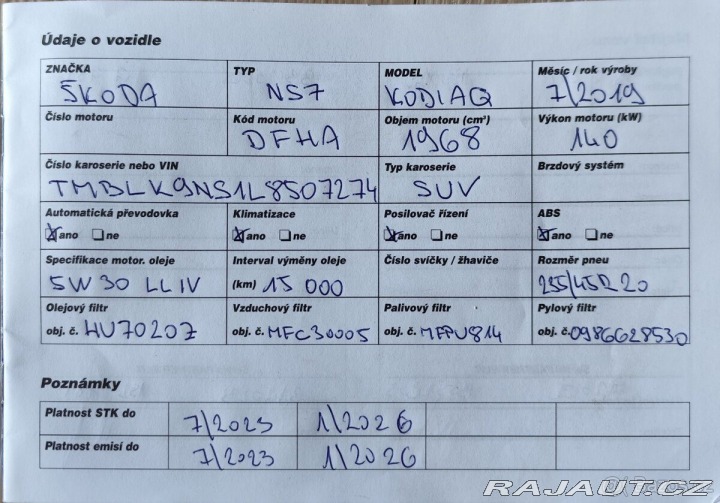 Údaje o vozidle
ZNAČKA TYP MODEL Měsíc / rok výroby
ŠKODA NS7 KODIAQ 7/2019
Číslo motoru Kód motoru Objem motoru (cm³) Výkon motoru (kW)
DFHA 1968 140
Číslo karoserie nebo VIN Typ karoserie Brzdový systém
TMBLK9NS1L8507274 SUV
Automatická převodovka Klimatizace Posilovač řízení ABS
ano ne ano ne ano ne ano ne
Specifikace motor. oleje Interval výměny oleje Číslo svíčky / žhaviče Rozměr pneu
5W30 LL IV (km) 15 000 255/45R20
Olejový filtr Vzduchový filtr Palivový filtr Pylový filtr
obj. č. HU7020Z obj. č. MFC30005 obj. č. MFPU814 obj. č. 0986628530
Poznámky
Platnost STK do 7/2023 1/2026
Platnost emisí do 7/2023 1/2026
RAJAUT.CZ